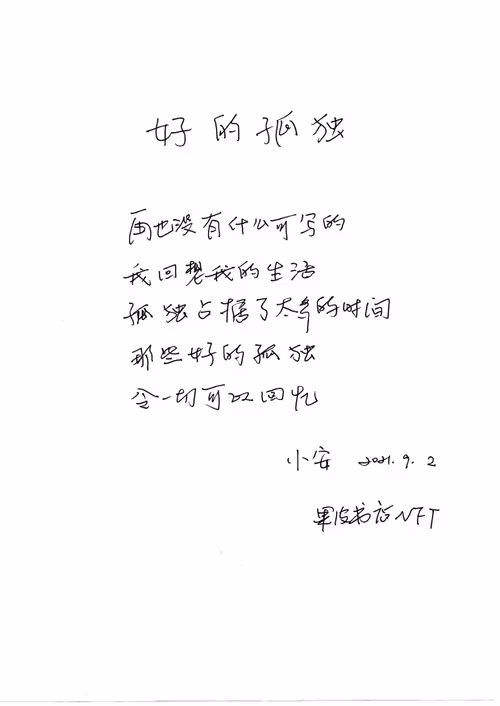 好的孤独
再也没有什么可写的
我回想我的生活
孤独占据了太多的时间
那些好的孤独
令一切可以回忆
小安 2021.9.2
果皮书店NFT